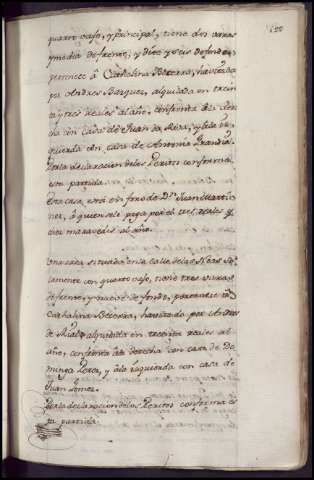 quarto vajo, y principal, tiene dos varas
y media de frente, y diez y seis de fondo,
pertenece â Cathalina Becerra, havitada
por Andres Barquez, alquilada en trein
ta y tres reales al año, confronta â la dere
cha con casa de Juan de Riva, y â la iz
quierda con casa de Antonia
Por la declaracion de los Peritos conforma
esta partida.
Esta casa, está en foro de Dn. Juan Marti
nez, â quien se le paga por el reales y
diez maravedis al año.
Una casa situada en la calle de las so
lamente con quarto vajo, tiene tres varas
de frente, y nueve de fondo, pertenece â
Cathalina Becerra, havitada por Andres
de Rial alquilada en treinta reales al
año, confronta â la derecha con casa de Do
minga Perez, y â la izquierda con casa de
Juan Gomez.
Por la declaracion de los Peritos conforma es
ta partida.